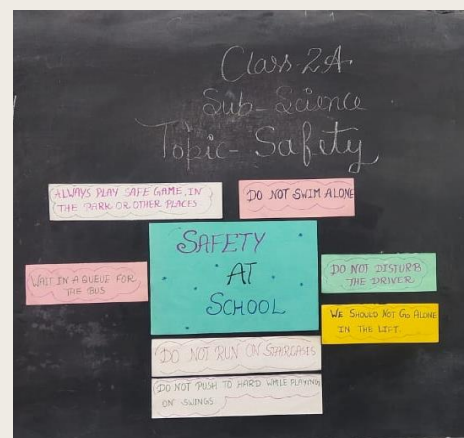 Class-2A
Sub-Science
Topic-Safety
ALWAYS PLAY SAFE GAME, IN
THE PARK OR OTHER PLACES
DO NOT SWIM ALONE
SAFETY
AT
SCHOOL
WAIT IN A QUEUE FOR
THE BUS
DO NOT DISTURB
THE DRIVER
WE SHOULD NOT GO ALONE
IN THE LIFT.
DO NOT RUN ON STAIRCASES
DO NOT PUSH TO HARD WHILE PLAYING
ON SWINGS